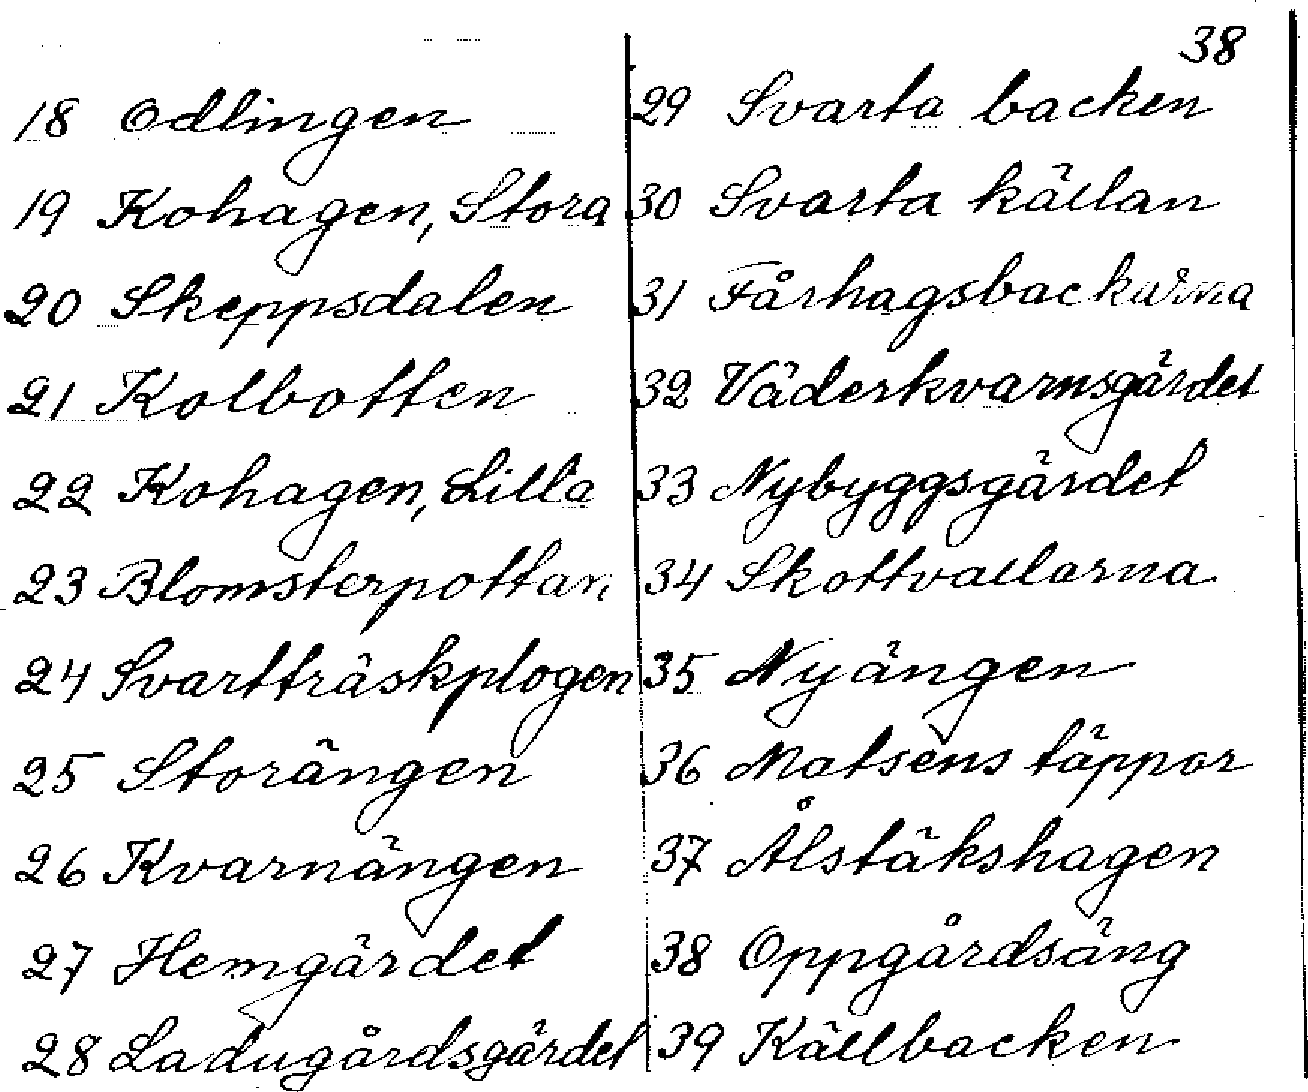 38
18 Odlingen
19 Kohagen, Stora
20 Skeppsdalen
21 Kolbotten
22 Kohagen, Lilla
23 Blomsterpottan
24 Svartträskplogen
25 Storängen
26 Kvarnängen
27 Hemgärdet
28 Ladugårdsgärdet
29 Svarta backen
30 Svarta källan
31 Fårhagsbackarna
32 Väderkvarnsgärdet
33 Nybyggsgärdet
34 Skottvallarna
35 Nyängen
36 Matsens täppor
37 Ålstäkshagen
38 Oppgårdsäng
39 Källbacken